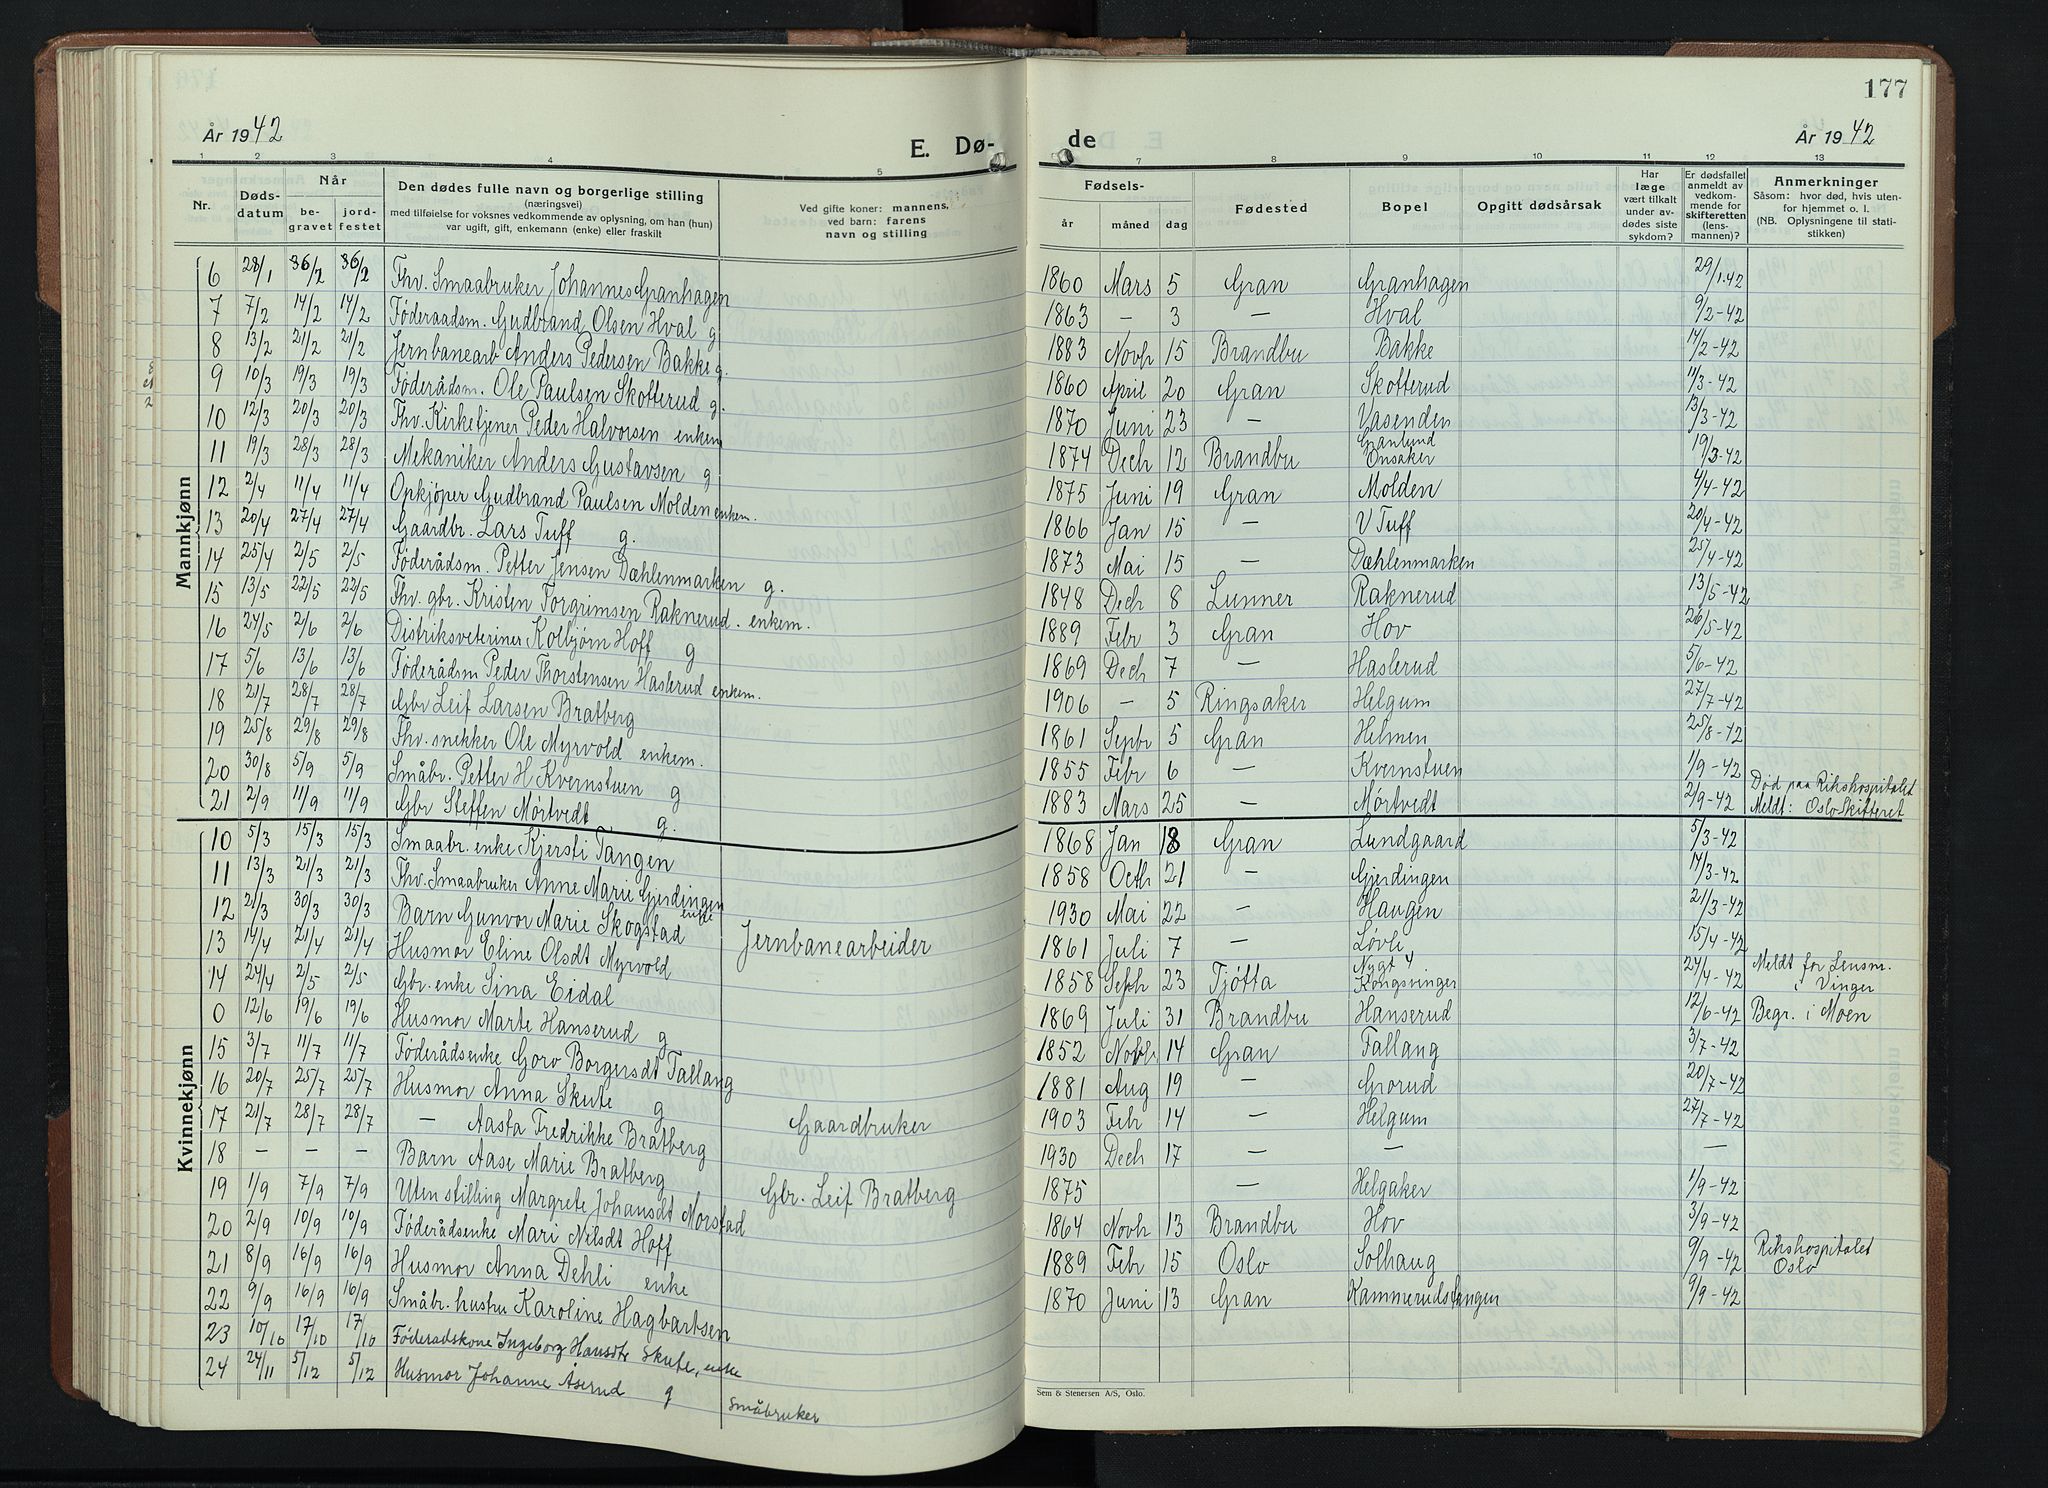 177
År 1942
E. Dø-
de
År 1942
1 2 3 4 5 7 8 9 10 11 12 13
Nr.
Døds-
datum
Når
be-
gravet
jord-
festet
Den dødes fulle navn og borgerlige stilling
(næringsvei)
med tilføielse for voksnes vedkommende av oplysning, om han (hun)
var ugift, gift, enkemann (enke) eller fraskilt
Ved gifte koner: mannens,
ved barn: farens
navn og stilling
Fødsels-
år måned dag
Fødested
Bopel
Opgitt dødsårsak
Har
læge
vært tilkalt
under av-
dødes siste
sykdom?
Er dødsfallet
anmeldt av
vedkom-
mende for
skifteretten
(lens-
mannen)?
Anmerkninger
Såsom: hvor død, hvis uten-
for hjemmet o. l.
(NB. Oplysningene til stati-
stikken)
Mannkjønn
6 28/1 6/2 6/2 Fhv. Smaabruker Johannes Granhagen 1860 Mars 5 Gran Granhagen 29/1.42
7 7/2 14/2 14/2 Føderaadsm. Gudbrand Olsen Hval g 1863 – 3 – Hval 9/2-42
8 13/2 21/2 21/2 Jernbanearb Anders Pedersen Bakke g. 1883 Novbr 15 Brandbu Bakke 14/2-42
9 10/3 19/3 19/3 Føderådsm. Ole Paulsen Skotterud g. 1860 April 20 Gran Skotterud 11/3-42
10 12/3 20/3 20/3 Fhv. Kirketjener Peder Halvorsen enkem 1870 Juni 23 – Vasenden 13/3-42
11 19/3 28/3 28/3 Mekaniker Anders Gustavsen g 1874 Decbr 12 Brandbu Granlund Onsaker 19/3-42
12 2/4 11/4 11/4 Opkjøper Gudbrand Paulsen Molden enkem. 1875 Juni 19 Gran Molden 4/4-42
13 20/4 27/4 27/4 Gaardbr. Lars Tuff g. 1866 Jan 15 – V Tuff 20/4-42
14 25/4 2/5 2/5 Føderådsm. Petter Jensen Dæhlenmarken g. 1873 Mai 15 – Dæhlenmarken 25/4-42
15 13/5 22/5 22/5 Fhv. gbr. Kristen Torgrimsen Raknerud. enkem. 1848 Decbr 8 Lunner Raknerud 13/5-42
16 24/5 2/6 2/6 Distriksveteriner Kolbjørn Hoff g 1889 Febr 3 Gran Hov 26/5-42
17 5/6 13/6 13/6 Føderådsm Peder Thorstensen Haslerud enkem. 1869 Decbr 7 – Haslerud 5/6-42
18 21/7 28/7 28/7 Gbr Leif Larsen Bratberg 1906 – 5 Ringsaker Helgum 27/7-42
19 25/8 29/8 29/8 Fhv. snekker Ole Myrvold enkem. 1861 Septbr 5 Gran Helmen 25/8-42
20 30/8 5/9 5/9 Småbr. Petter H Kvernstuen g 1855 Febr 6 – Kvernstuen 1/9-42
21 2/9 11/9 11/9 Gbr Steffen Mørtvedt g. 1883 Mars 25 – Mørtvedt 2/9-42 Død paa Rikshospitalet
Meldt: Oslo Skifteret
Kvinnekjønn
10 5/3 15/3 15/3 Smaabr. enke Kjersti Tangen 1868 Jan 18 Gran Lundgaard 5/3-42
11 13/3 21/3 21/3 Fhv. Smaabruker Anne Marie Gjerdingen enke 1858 Octbr 21 – Gjerdingen 14/3-42
12 21/3 30/3 30/3 Barn Gunvor Marie Skogstad Jernbanearbeider 1930 Mai 22 – Haugen 21/3-42
13 14/4 21/4 21/4 Husmor Eline Olsdt Myrvold 1861 Juli 7 – Løvli 15/4-42
14 24/4 2/5 2/5 Gbr. enke Sina Eidal 1858 Septbr 23 Tjøtta Nygt 4 Kongsvinger 24/4-42 Meldt for Lensm.
i Vinger
0 12/6 19/6 19/6 Husmor Marte Hanserud g 1869 Juli 31 Brandbu Hanserud 12/6-42 Begr. i Moen
15 3/7 11/7 11/7 Føderådsenke Goro Borgersdt Tallang 1852 Novbr 14 Gran Tallang 3/7-42
16 20/7 25/7 25/7 Husmor Anna Skute g 1881 Aug 19 – Grorud 20/7-42
17 21/7 28/7 28/7 – Aasta Fredrikke Bratberg Gaardbruker 1903 Febr 14 – Helgum 27/7-42
18 – – – Barn Aase Marie Bratberg Gbr. Leif Bratberg 1930 Decbr 17 – – –
19 1/9 7/9 7/9 Uten stilling Margrete Johansdt Morstad 1875 – Helgaker 1/9-42
20 2/9 10/9 10/9 Føderådsenke Mari Nilsdt Hoff 1864 Novbr 13 Brandbu Hov 3/9-42
21 8/9 16/9 16/9 Husmor Anna Dehli enke 1889 Febr 15 Oslo Solhaug 9/9-42 Rikshospitalet
Oslo
22 9/9 16/9 16/9 Småbr. hustru Karoline Hagbartsen 1870 Juni 13 Gran Kammerudstangen 9/9-42
23 10/10 17/10 17/10 Føderadskone Ingeborg Hansdtr Skute, enke
24 24/11 5/12 5/12 Husmor Johanne Åserud g Småbruker
Sem & Stenersen A/S, Oslo.